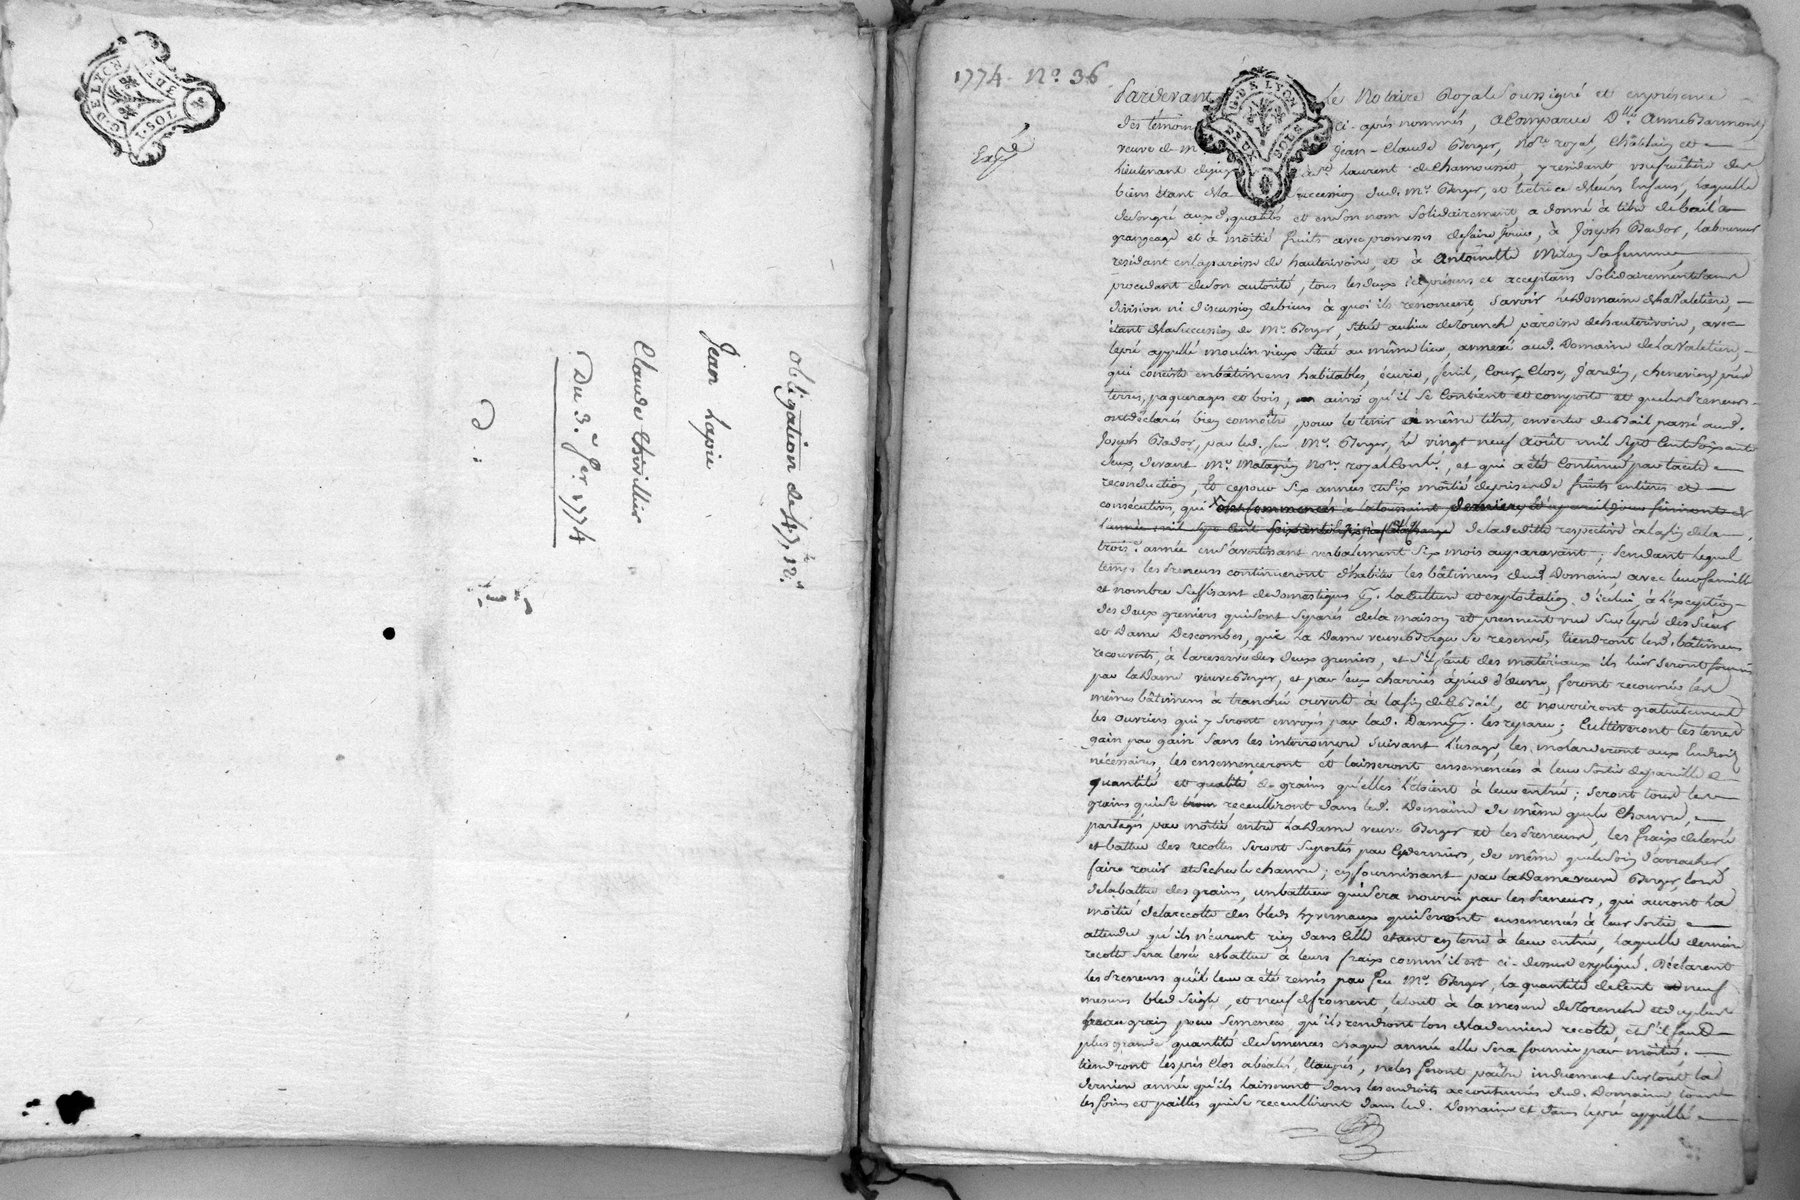 G. DE LYON
1. SOL
obligation de 47# 12s
Jean Lapie
Claude Thivillier
Du 3e fer 1774
1774. No. 36
G. DE LYON
Pardevant le Notaire Royal Soussigné et en présence
des témoins ci-après nommés, a Comparue Dlle Anne Barmont,
veuve de Me Jean-Claude Berger, Nore royal, Châtelain et
Lieutenant de juge de St Laurent de Chamousset, y résidant, usufruitière des
biens étant de la succession dud. Me Berger, et tutrice de leurs Enfans, Laquelle
de son gré aux d. qualités et en son nom solidairement, a donné à titre de bail à
grangeage et à moitié fruits avec promesses de faire jouir, à Joseph Bador, Laboureur
résidant en la paroisse de hauterivoire, et à Antoinette sa femme,
procédant de son autorité, tous les deux ici présens et acceptans solidairement sans
division ni discussion de biens à quoi ils renoncent, savoir le Domaine de la Valetière,
étant de la succession de Me Berger, situé au lieu de paroisse de hauterivoire, avec
le pré appellé moulin vieux situé au même lieu, annexé aud. Domaine de la Valetière,
qui consiste en bâtimens habitables, écurie, fenil, Cour, Close, Jardin, chenevier, prés
terres, paquerages et bois, ainsi qu'il se Contient et comporte et que les preneurs
ont déclarés bien connoître, pour le tenir à même titre, en vertu du Bail passé aud.
Joseph Bador, par led. feu Me Berger, le vingt neuf Août mil sept Cent soixante
deux, devant Me Matagrin Nore royal, et qui a été Continué par tacite
reconduction, Et ce pour six années et six moitié de prise de fruits entières et
consécutives, qui ont commencés à la toussaint dernière et à pareil jour finiront de
l'année mil sept Cent de la dedite respective à la fin de la
trois.e année en s'avertissant verbalement six mois auparavant; pendant lequel
temps les preneurs continueront d'habiter les bâtimens dud. Domaine, avec leur famille
et nombre suffisant de domestiques pr. la Culture et exploitation d'icelui, à l'exception
des deux greniers qui sont séparés de la maison et prennent vue sur le pré des Sieur
et Dame Descombes, que la Dame veuve Berger se reserve, tiendront lesd. bâtimens
recouverts, à la reserve des deux greniers, et s'il faut des matériaux ils leur seront fournis
par la Dame veuve Berger, et par eux charriés à pied d'œuvre, feront recourir les
mêmes bâtimens à tranché ouverte à la fin du Bail, et nourriront gratuitement
les ouvriers qui y seront envoyés par lad. Dame pr. les reparer; Cultiveront les terres
gain par gain sans les interrompre suivant l'usage, les molarderont aux Endroits
nécessaires, les ensemenceront et laisseront ensemencées à leur sortie de pareille
quantité et qualité de grains qu'elles l'étoient à leur entrée; seront tous les
grains qui se receuilliront dans led. Domaine de même que le Chanvre,
partagés par moitié entre la Dame veuve Berger et les preneurs, les fraix de levée
et battue des recoltes seront suportés par Ces derniers, de même que le soin d'arracher,
faire rouir et sécher le chanvre; en fournissant par la Dame veuve Berger, lors
de la battue des grains, un batteur qui sera nourri par les preneurs, qui auront la
moitié de la recolte des bleds hyvernaux qui seront ensemencés à leur sortie
attendu qu'ils n'eurent rien dans Celle étant en terre à leur entrée, laquelle dernière
recolte sera levée et battue à leurs fraix comm'il est ci-dessus expliqué. Déclarent
les preneurs qu'il leur a été remis par feu Me Berger, la quantité de Cent neuf
mesures bled seigle, et neuf de froment, le tout à la mesure de
grain pour semences qu'ils rendront lors de la dernière recolte, et s'il faut
plus grande quantité de semences chaque année elle sera fournie par moitié;
tiendront les prés Clos, Etaupés, ne les feront paître indument surtout la
dernière année qu'ils laisseront dans les endroits accoutumés dud. Domaine, tous
les foins et pailles qui se receuilliront dans led. Domaine et dans le pré appellé